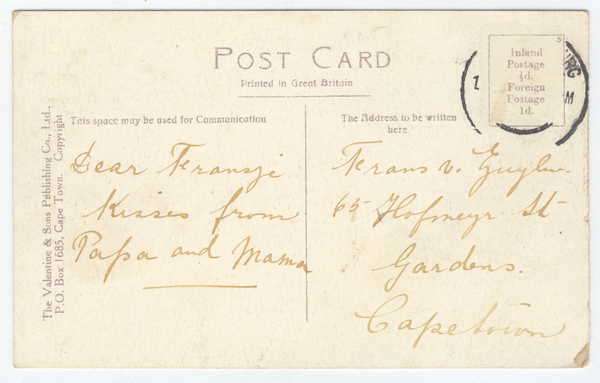 POST CARD
Printed in Great Britain
Inland
Postage
½d.
Foreign
Postage
1d.
URG
M
The Valentine & Sons Publishing Co., Ltd.,
P.O. Box 1685, Cape Town. Copyright
This space may be used for Communication
Dear Fransje
Kisses from
Papa and Mama
The Address to be written
here
Frans v.
65 Hofmeyr St
Gardens.
Capetown